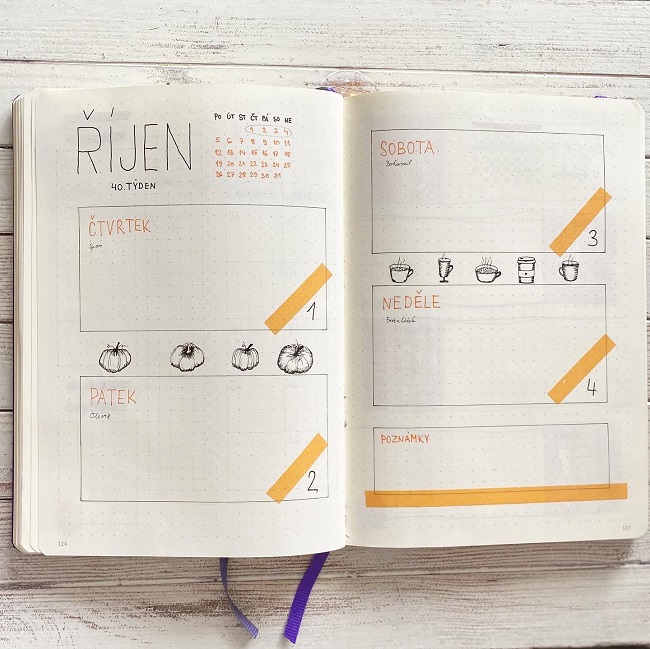 ŘÍJEN
40. TÝDEN
PO ÚT ST ČT PÁ SO NE
1 2 3 4
5 6 7 8 9 10 11
12 13 14 15 16 17 18
19 20 21 22 23 24 25
26 27 28 29 30 31
ČTVRTEK
Igor
1
PÁTEK
Olivie
2
124
SOBOTA
Bohumil
3
NEDĚLE
František
4
POZNÁMKY
125